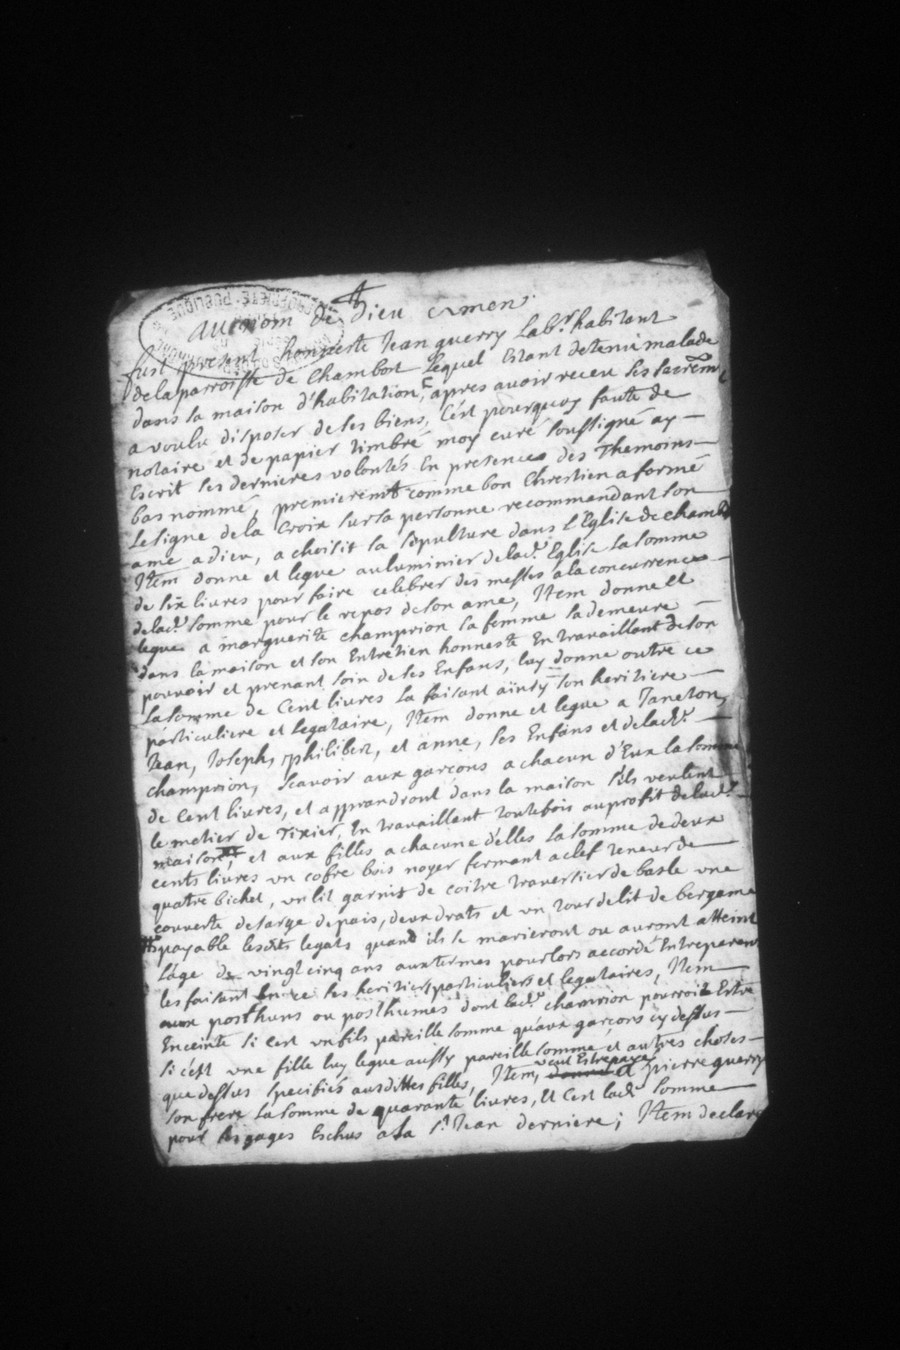 au nom de Dieu amen
fust present honneste Jean guerry Labr habitant
de la parroisse de Chambost Lequel Estant detenu malade
dans sa maison d'habitation, apres avoir receu ses sacremts
a voulu disposer de ses biens, C'est pourquoy faute de
notaire et de papier timbré moy curé soussigné ay
Escrit ses dernieres volontés En presence des Themoins
bas nommé, premieremt comme bon Chrestien a formé
Le signe de la Croix sur sa personne recommandant son
ame a Dieu, a choisit sa sepulture dans l'Eglise de chambost
Item donne et legue au luminier de lad. Eglise La somme
de six livres pour faire celebrer des messes a la concurrence
de lad. somme pour le repos de son ame, Item donne et
legue a marguerite champrion sa femme sa demeure
dans la maison et son Entretien honneste En travaillant de son
pouvoir et prenant soin de ses Enfans, luy donne outre ce
La somme de Cent livres La faisant ainsy son heritiere
particuliere et legataire, Item donne et legue a Taneton,
Jean, Joseph, philibert, et anne, ses Enfans et de lad.
champrion, scavoir aux garçons a chacun d'Eux la somme
de Cent livres, et apprandront dans la maison s'ils veulent
le metier de Tixier, En travaillant toutefois au profit de lad.
maison, et aux filles a chacune d'elles La somme de deux
cents livres un cofre bois noyer fermant a clef teneur de
quatre bichet, un lit garnit de coitre traversier de basle une
couverte de sarge de pais, deux draps et un tour de lit de bergame
payable lesdts legats quand ils se marieront ou auront atteint
l'age de vingt cinq ans aux termes pour lors accordé Entre parens
les faisant En ce ses heritiers particuliers et legataires, Item
aux posthuns ou posthumes dont lad. champrion pourroit Estre
Enceinte si c'est un fils pareille somme qu'aux garçons cy dessus
si c'est une fille luy legue aussy pareille somme et autres choses
que dessus specifiés auxdittes filles, Item, veut Estre payé a pierre guerry
son frere La somme de quarante livres, Et C'est lad. somme
pour ses gages Eschus a la St Jean derniere; Item declare